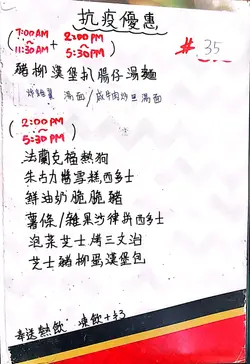 抗疫優惠
(7:00AM ~ 11:30AM + 2:00PM ~ 5:30PM)
# 35
豬柳漢堡扒腸仔湯麵
湯面/咸牛肉炒旦湯面
(2:00PM ~ 5:30PM)
法蘭克福熱狗
朱古力醬雪糕西多士
鮮油奶脆脆豬
薯條/雜果沙律與西多士
泡菜芝士烤三文治
芝士豬柳蛋漢堡包
幸送熱飲 凍飲+$3